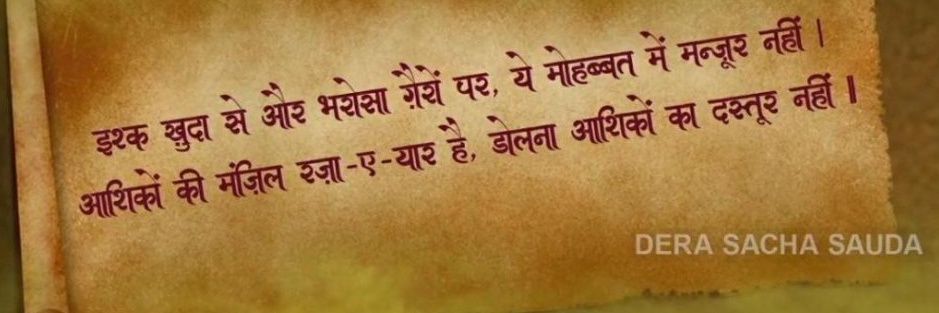 इश्क ख़ुदा से और भरोसा ग़ैरों पर, ये मोहब्बत में मन्ज़ूर नहीं ।
आशिकों की मंज़िल रज़ा-ए-यार है, डोलना आशिकों का दस्तूर नहीं ॥
DERA SACHA SAUDA